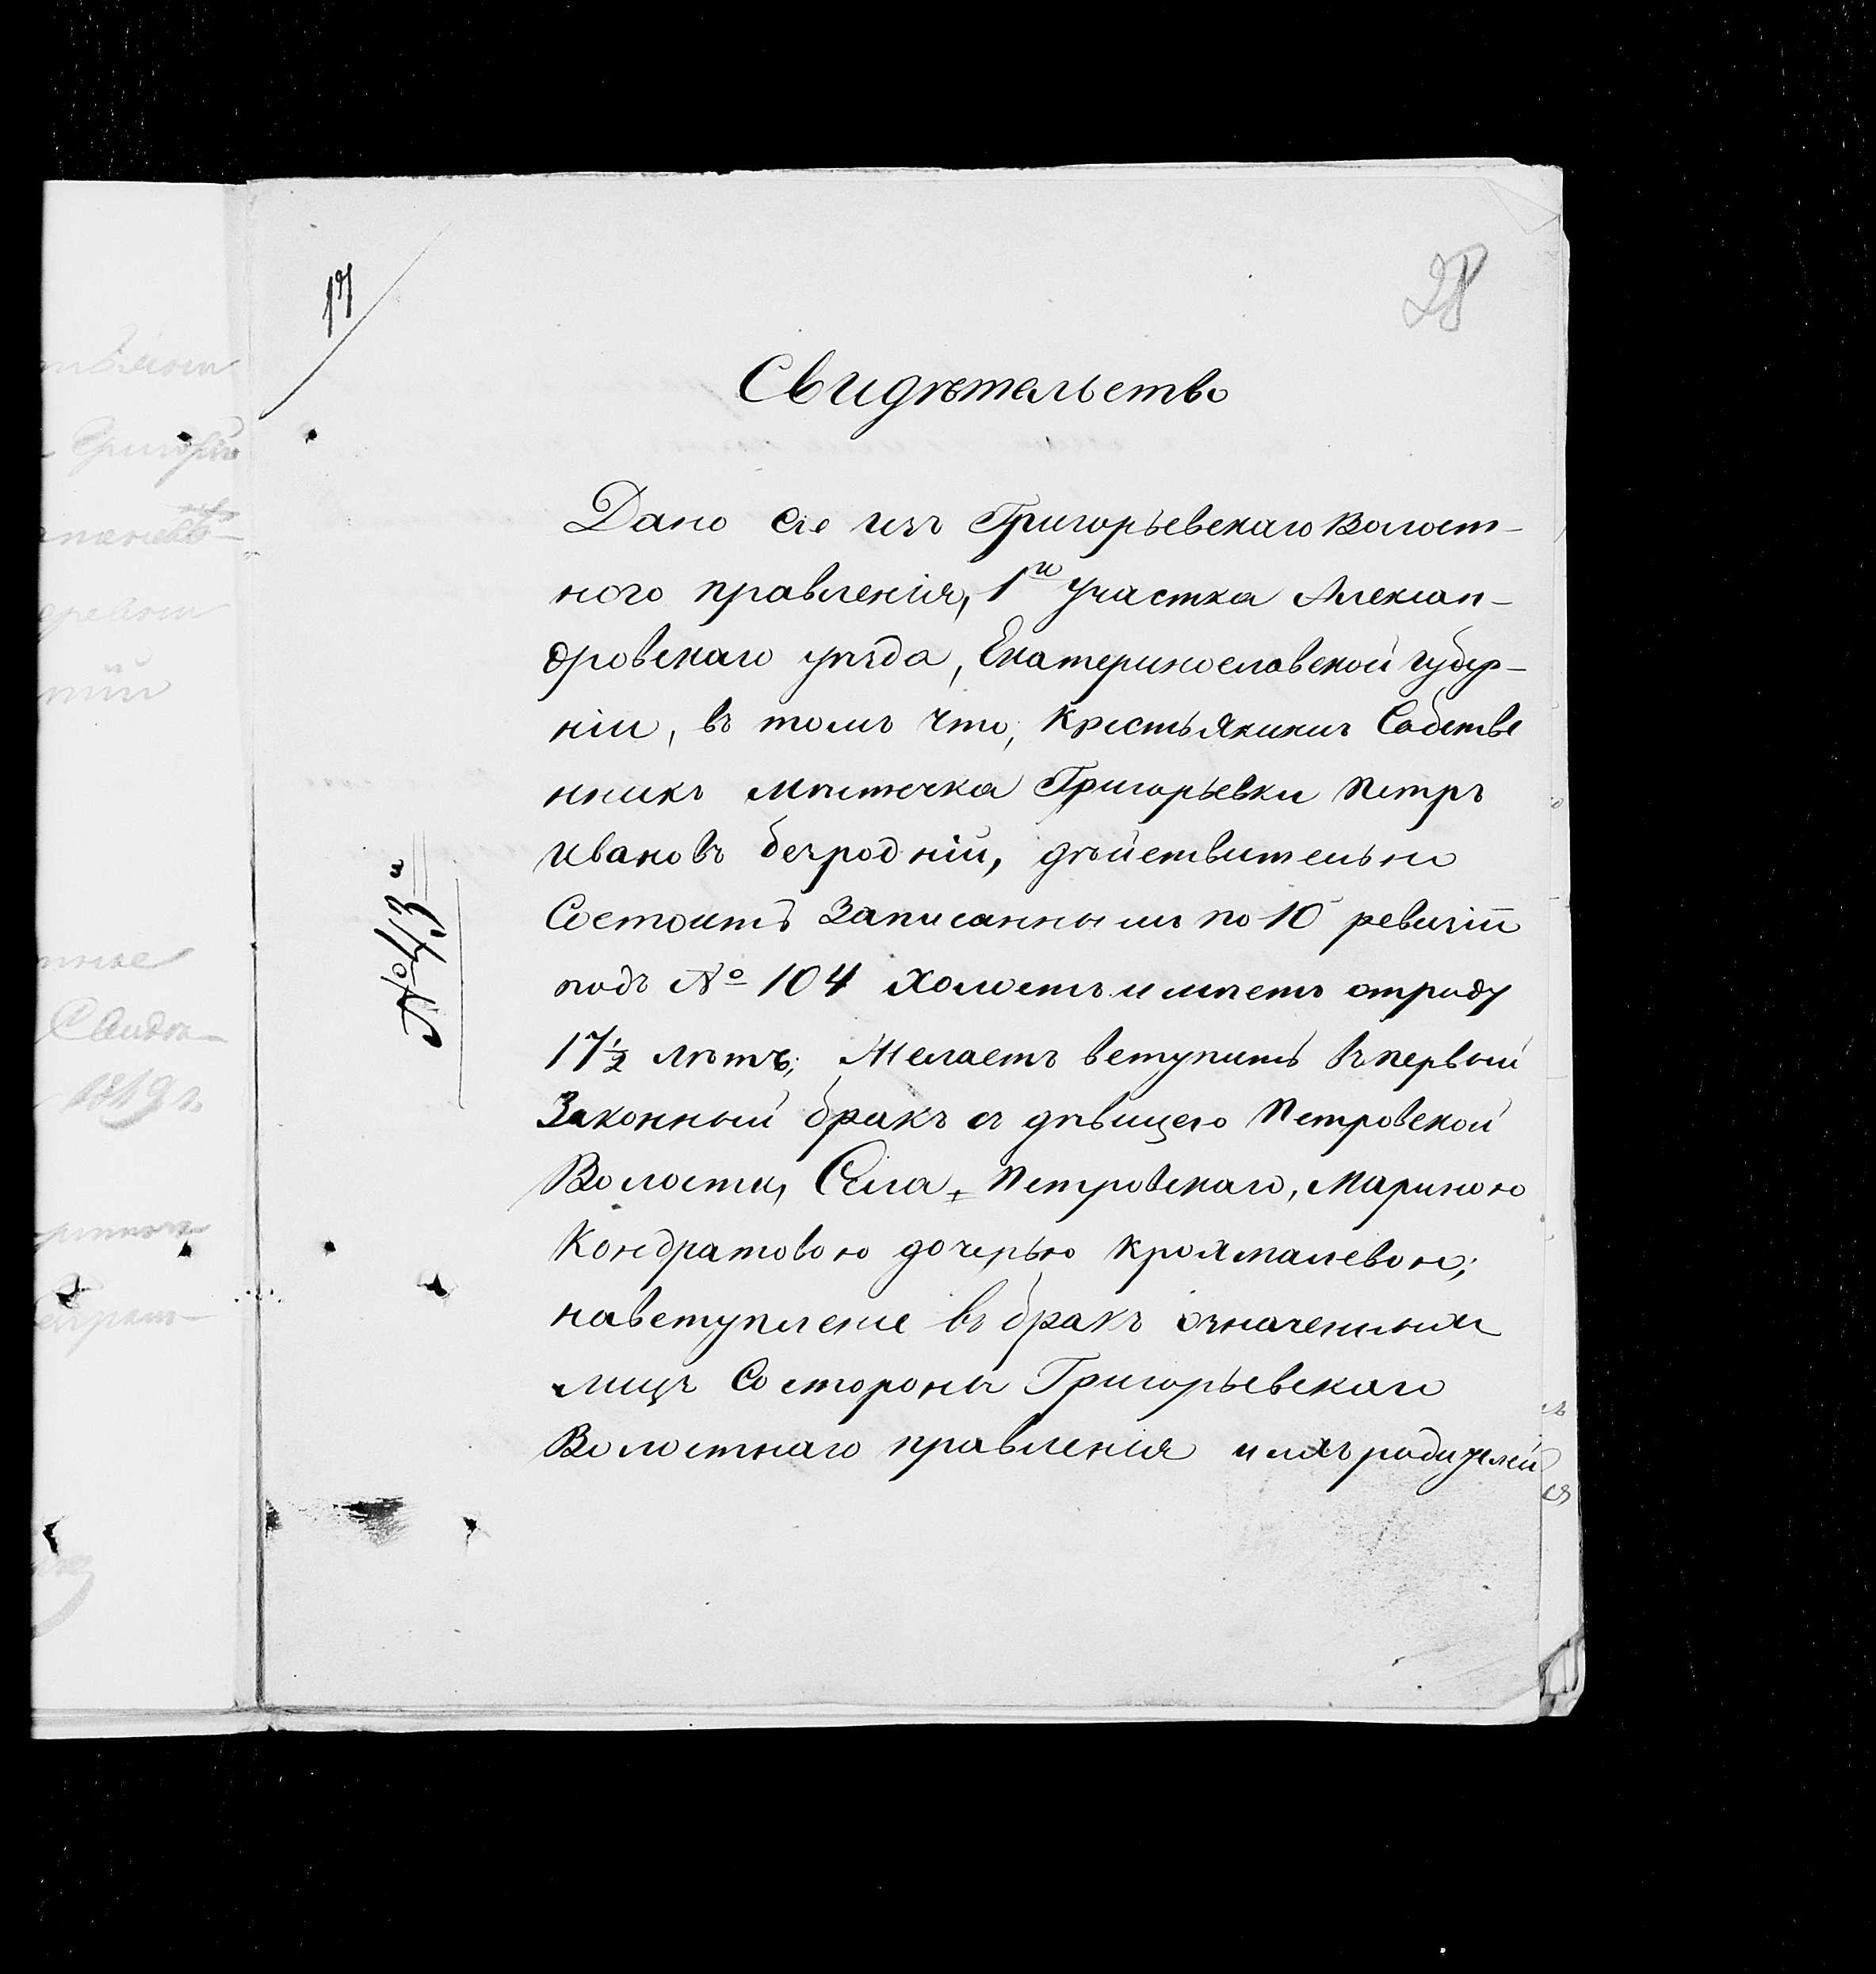 17
28
Свидѣтельство
Дано сіе изъ Григорьевскаго Волост-
ного правленія, 1го участка Алексан-
дровскаго уѣзда, Екатеринославской губер-
ніи, въ томъ что, крестьянинъ Собстве
нникъ мѣстечка Григорьевки Петръ
Ивановъ безродній, дѣйствительно
Состоитъ Записаннымъ по 10 ревизіи
подъ № 104 холостъ и имѣетъ отроду
17½ лѣтъ; Желаетъ вступить въ первый
Законный бракъ съ дѣвицею Петровской
Волости, Села Петровскаго, Мариною
Кондратовою дочерью Крохмалевою;
на вступленіе въ бракъ означенныхъ
лицъ Со стороны Григорьевскаго
Волостнаго правленія и ихъ родителей